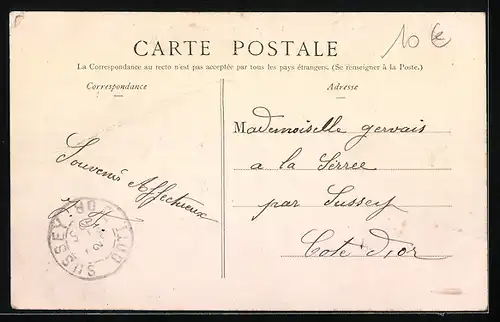 10 €
CARTE POSTALE
La Correspondance au recto n'est pas acceptée par tous les pays étrangers. (Se renseigner à la Poste.)
Correspondance
Adresse
Mademoiselle gervais
a la Serrée
par Sussey
Cote d'or
Souvenir Affectueux
SUSSEY